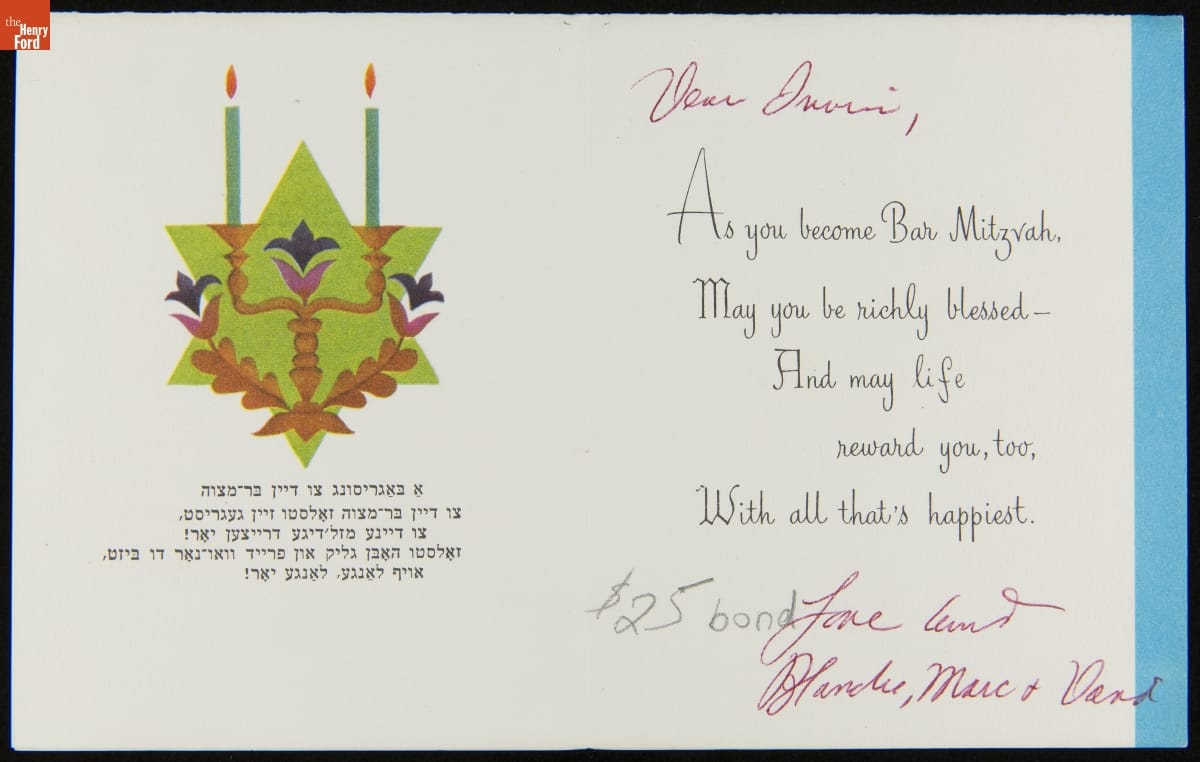 the
Henry
Ford
אַ באַגריסונג צו דיין בר־מצוה
צו דיין בר־מצוה זאָלסטו זיין געגריסט,
צו דיינע מזל׳דיגע דרייצען יאָר!
זאָלסטו האָבן גליק און פרייד וואו־נאָר דו ביזט,
אויף לאַנגע, לאַנגע יאָר!
Dear
As you become Bar Mitzvah,
May you be richly blessed—
And may life
reward you, too,
With all that's happiest.
$25 bond
Love Aunt
Blanche, Marc &